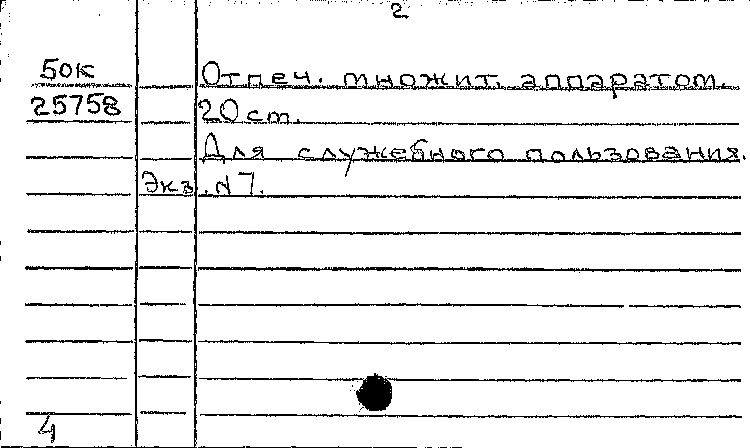 2
50к Отпеч. множит. аппаратом.
25758 20 ст.
Для служебного пользования.
Экз. N 7.
4